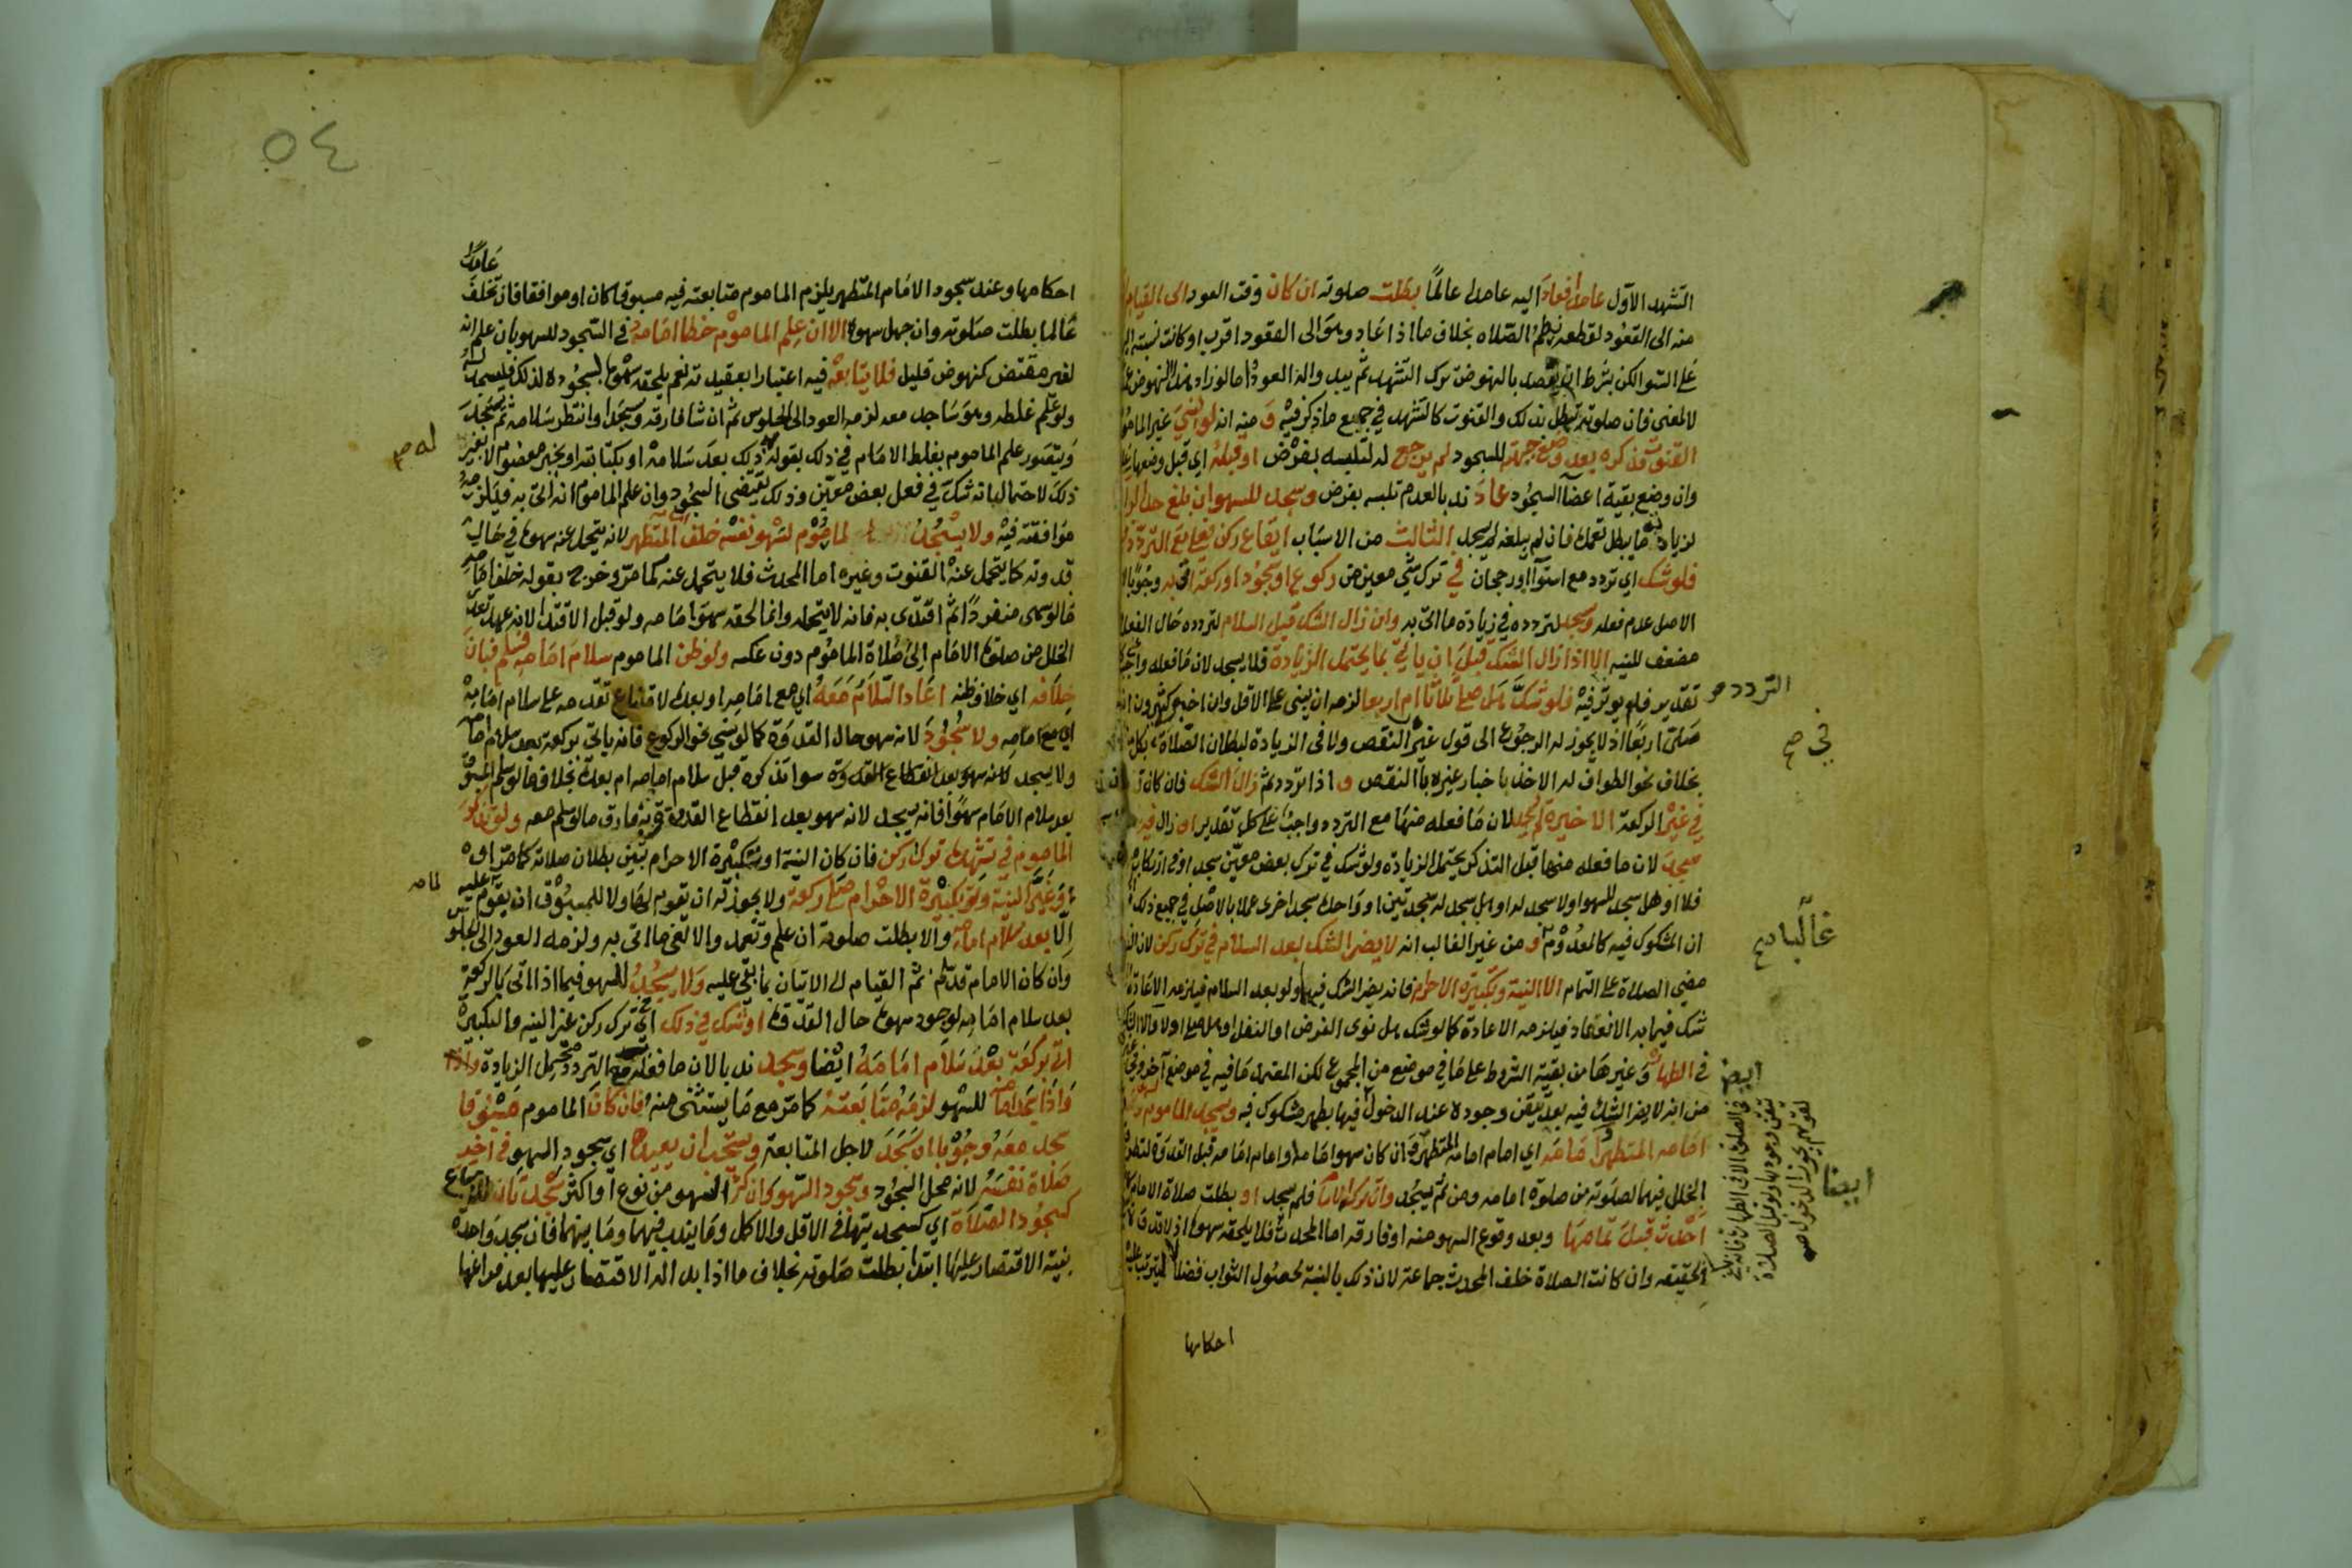 التشهد الاول عامدا فعاد اليه عامدا عالما بطلت صلوته ان كان وقت العود الى القيام
منه الى القعود لقطعه نظم الصلاه بخلاف ما اذا عاد وهو الى القعود اقرب او كانت نسبته
على السوا لكن بشرط ان يقصد بالنهوض ترك التشهد ثم يبد واله العود اما لو زاد هذا النهوض
لا لمعنى فان صلوته تبطل بذلك والقنوت كالتشهد في جميع ما ذكر فيه و منه انه لو نسي غير الماموم
القنوت فذكره بعد وضع جبهته للسجود لم يرجع له لتلبسه بفرض او قبله اي قبل وضعها
وان وضع بقية اعضا السجود عاد ندبا لعدم تلبسه بفرض وسجد للسهو ان بلغ حد الراكع
لزيادته ما يبطل تعمده فان لم يبلغه لم يسجد الثالث من الاسباب ايقاع ركن فعلي مع التردد
فلو شك اي تردد مع استوآ او رجحان في ترك شي معين من ركوع او سجود او ركعة اتى به وجوبا لان
الاصل عدم فعله وسجد لتردده في زيادة ما اتى به وان زال الشك قبل السلام لتردده حال الفعل
مضعف للنيه الا اذا زال الشك قبل ان ياتي بما يحتمل الزيادة فلا يسجد لان ما فعله واجب
تقدير فلم يوثر فيه فلو شك هل صلى ثلاثا ام اربعا لزمه ان يبني على الاقل وان اخبره كثيرون انه
صلى اربعا اذ لا يجوز له الرجوع الى قول غيره في النقص ولا في الزيادة لبطلان الصلاة بكل
بخلاف نحو الطواف له الاخذ باخبار غيره بالنقص و اذا تردد ثم زال الشك فان كان
في غير الركعة الاخيرة لم يسجد لان ما فعله منها مع التردد واجب على كل تقدير او زال فيها
سجد لان ما فعله منها قبل التذكر يحتمل الزيادة ولو شك في ترك بعض معين سجد او في ارتكاب
فلا او هل سجد للسهو اولا سجد له او هل سجد له سجدتين او واحدة سجد اخرى عملا بالاصل في جميع ذلك
ان المشكوك فيه كالمعدوم و من غير الغالب انه لا يضر الشك بعد السلام في ترك ركن لان
مضي الصلاة على التمام الا النية وتكبيرة الاحرام فانه يضر الشك فيها ولو بعد السلام فيلزمه الاعادة
شك فيما به الانعقاد فيلزمه الاعادة كما لو شك هل نوى الفرض او النفل او هل صلى اولا اما الشك
في الطهارة وغيرها من بقية الشروط على ما في موضع من المجموع لكن المعتمد ما فيه في موضع آخر
من انه لا يضر الشك فيه بعد تيقن وجوده عند الدخول فيها بطهر مشكوك فيه وسجد الماموم لسهو
امامه المتطهر وامامه اي امام امامه المتطهر وان كان سهو امامه او امام امامه قبل القدوة لتطرق
الخلل فيهما لصلوته من صلوة امامه ومن ثم يسجد وان ترك الامام فلم يسجد او بطلت صلاة الامام كان
احدث قبل تمامها وبعد وقوع السهو منه او فارقه اما المحدث فلا يلحقه سهوه اذ لا قدوة
الحقيقه وان كانت الصلاة خلف المحدث جماعة لان ذلك بالنسبة لحصول الثواب فضلا لا ليترتب عليه
احكامها
التردد صح
في صح
غالبا صح
ايضا
ايضا
في الصلوة الا في الطهارة فانه
تيقن وجودها ولو قبل الصلاة
لقولهم يجوز الدخول صح
٥٤
عامدا
احكامها وعند سجود الامام المتطهر يلزم الماموم متابعته فيه مسبوقا كان او موافقا فان تخلف
عالما بطلت صلوته وان جهل سهوه الا ان علم الماموم خطا امامه في السجود للسهو بان علم انه
لغير مقتض كنهوض قليل فلا يتابعه فيه اعتبارا بعقيدته نعم يلحقه سهوه لسجوده لذلك فليسجد له
ولو علم غلطه وهو ساجد معه لزمه العود الى الجلوس ثم ان شا فارقه وسجد او انتظر سلامه ثم سجد
ويتصور علم الماموم بغلط الامام في ذلك بقوله ذلك بعد سلامه او بكتابته او بخبر معصوم لا بغير
ذلك لاحتمال انه شك في فعل بعض معين وذلك يقتضي السجود وان علم الماموم انه اتى به فيلزمه
موافقته فيه ولا يسجد الماموم لسهو نفسه خلف امامه المتطهر لانه يتحمل عنه سهوه في حال
قدوته كما يتحمل عنه القنوت وغيره اما المحدث فلا يتحمل عنه كما مر وخرج بقوله خلف امامه
ما لو سهى منفردا ثم اقتدى به فانه لا يتحمله وانما لحقه سهو امامه ولو قبل الاقتدا لانه عهد تعدي
الخلل من صلوة الامام الى صلاة الماموم دون عكسه ولو ظن الماموم سلام امامه فسلم فبان
خلافه اي خلاف ظنه اعاد السلام معه اي مع امامه او بعده لامتناع تقدمه على سلام امامه
اي مع امامه ولا سجود لانه سهو حال القدوة كما لو نسي نحو الركوع فانه ياتي بركعة بعد سلام امامه
ولا يسجد لانه سهو بعد انقطاع القدوة سوا تذكره قبل سلام امامه ام بعده بخلاف ما لو سلم المسبوق
بعد سلام الامام سهوا فانه يسجد لانه سهو بعد انقطاع القدوة وبه فارق ما لو سلم معه ولو تذكر
الماموم في تشهده ترك ركن فان كان النية او تكبيرة الاحرام تبين بطلان صلاته كما مر او
وغير النية وتكبيرة الاحرام صلى ركعة ولا يجوز له ان يقوم لها ولا للمسبوق ان يقوم لما عليه
الا بعد سلام امامه والا بطلت صلوته ان علم وتعمد والا لغى ما اتى به ولزمه العود الى الجلوس
وان كان الامام قد سلم ثم القيام الى الاتيان بما بقي عليه ولا يسجد للسهو فيما اذا اتى بالركعة
بعد سلام امامه لوجود سهوه حال القدوة او شك في ذلك اي ترك ركن غير النيه والتكبيرة
اتى بركعة بعد سلام امامه ايضا وسجد ندبا لان ما فعله مع التردد محتمل الزيادة واذا
واذا سجد امامه للسهو لزمه متابعته كما مر مع ما يستثنى منه فان كان الماموم مسبوقا
سجد معه وجوبا ان سجد لاجل المتابعة ويستحب ان يعيده اي سجود السهو في اخر
صلاة نفسه لانه محل السجود وسجود السهو وان كثر السهو من نوع او اكثر سجدتان
كسجود الصلاة اي كسجدتها في الاقل والاكمل وما يندب فيهما وما بينهما فان سجد واحدة
بنية الاقتصار عليها ابتدا بطلت صلوته بخلاف ما اذا بدا له الاقتصار عليها بعد فراغها
له صح
لما صح